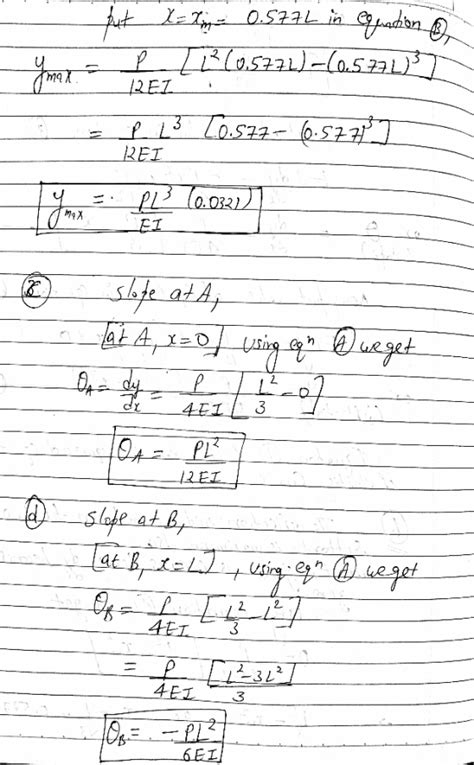 put x = xm = 0.577L in equation Ⓑ,
ymax = P/12EI [L²(0.577L) - (0.577L)³]
= P L³/12EI [0.577 - (0.577)³]
ymax = PL³/EI (0.0321)
slope at A,
[at A, x=0] using eqⁿ Ⓐ we get
θA = dy/dx = P/4EI [L²/3 - 0]
θA = PL²/12EI
ⓓ slope at B,
[at B, x=L], using eqⁿ Ⓐ we get
θB = P/4EI [L²/3 - L²]
= P/4EI [L²-3L²/3]
θB = -PL²/6EI